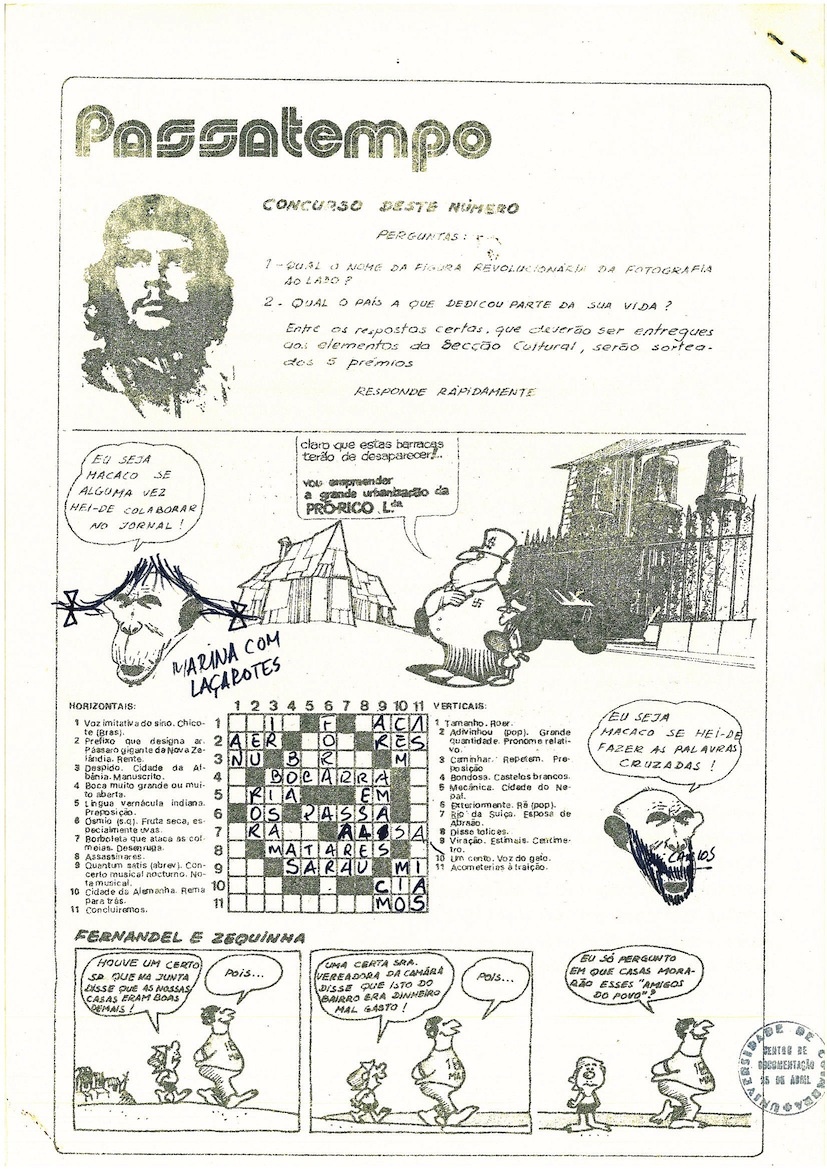 Passatempo
CONCURSO DESTE NÚMERO
PERGUNTAS:
1 - QUAL O NOME DA FIGURA REVOLUCIONÁRIA DA FOTOGRAFIA
AO LADO?
2. QUAL O PAÍS A QUE DEDICOU PARTE DA SUA VIDA?
Entre as respostas certas, que deverão ser entregues
aos elementos da Secção Cultural, serão sortea-
dos 5 prémios
RESPONDE RÁPIDAMENTE
EU SEJA
MACACO SE
ALGUMA VEZ
HEI-DE COLABORAR
NO JORNAL!
claro que estas barracas
terão de desaparecer!..
vou empreender
a grande urbanização da
PRÓ-RICO L.da
MARINA COM
LAÇAROTES
HORIZONTAIS:
1 Voz imitativa do sino. Chico-
te (Bras).
2 Prefixo que designa ar.
Pássaro gigante da Nova Ze-
lândia. Rente.
3 Despido. Cidade da Al-
bânia. Manuscrito.
4 Boca muito grande ou mui-
to aberta.
5 Língua vernácula indiana.
Preposição.
6 Ósmio (s.q). Fruta seca, es-
pecialmente uvas.
7 Borboleta que ataca as col-
meias. Desenruga.
8 Assassinares.
9 Quantum satis (abrev). Con-
certo musical nocturno. No-
ta musical.
10 Cidade da Alemanha. Rema
para trás.
11 Concluíremos.
1 2 3 4 5 6 7 8 9 10 11
1 I F A C A
2 A E R O R E S
3 N U B R M
4 B O C A R R A
5 R I A E M
6 O S P A S S A
7 R A A A S S A
8 M A T A R E S
9 S A R A U M I
10 C I A
11 M O S
VERTICAIS:
1 Tamanho. Roer.
2 Adivinhou (pop). Grande
quantidade. Pronome relati-
vo.
3 Caminhar. Repetem. Pre-
posição
4 Bondosa. Castelos brancos.
5 Mecânica. Cidade do Ne-
pal.
6 Exteriormente. Rê (pop).
7 Rio da Suíça. Esposa de
Abraão.
8 Disse tolices.
9 Viração. Estimais. Centíme-
tro.
10 Um cento. Voz do gato.
11 Acometerias à traição.
EU SEJA
MACACO SE HEI-DE
FAZER AS PALAVRAS
CRUZADAS!
CARLOS
FERNANDEL E ZEQUINHA
HOUVE UM CERTO
SR. QUE NA JUNTA
DISSE QUE AS NOSSAS
CASAS ERAM BOAS
DEMAIS!
POIS...
UMA CERTA SRA.
VEREADORA DA CAMÂRA
DISSE QUE ISTO DO
BAIRRO ERA DINHEIRO
MAL GASTO!
POIS...
EU SÓ PERGUNTO
EM QUE CASAS MORA-
RÃO ESSES "AMIGOS
DO POVO"?
UNIVERSIDADE DE COIMBRA
CENTRO DE
DOCUMENTAÇÃO
25 DE ABRIL